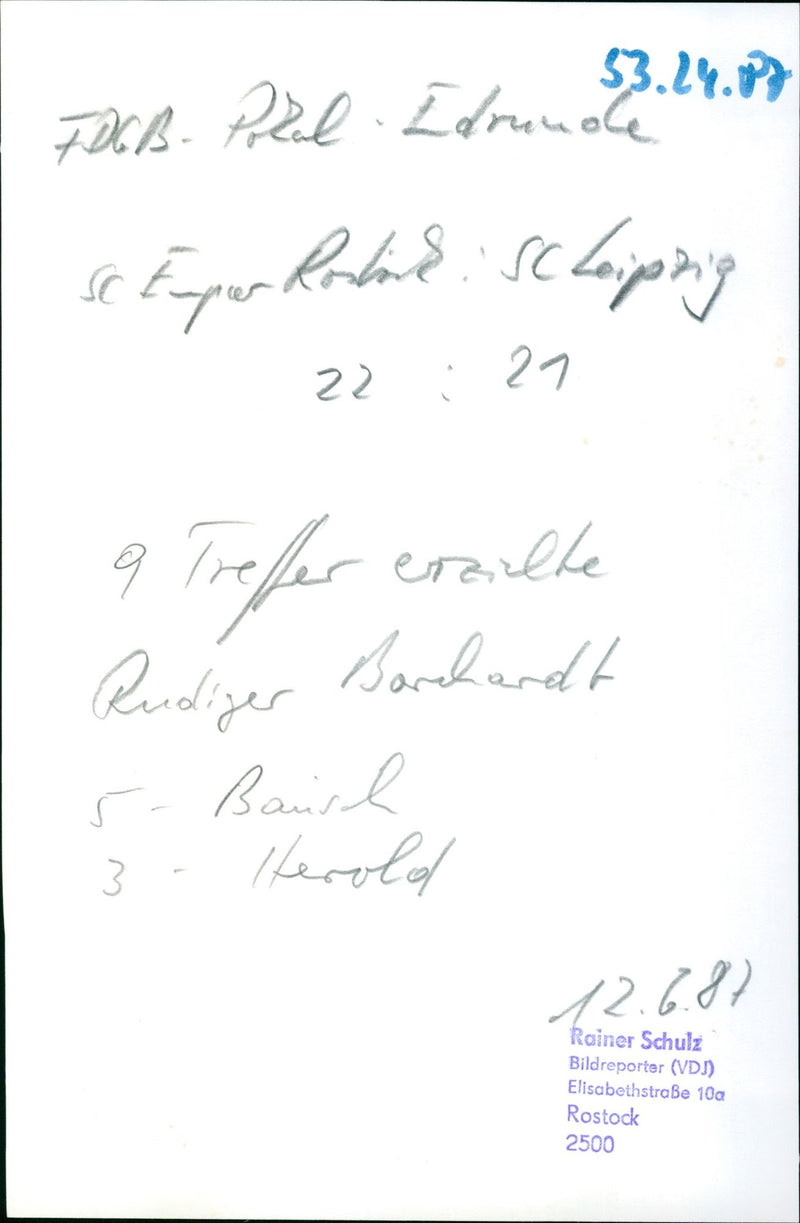 53.24.87
FDGB-Pokal-Edrunde
SC Empor Rostock : SC Leipzig
22 : 21
9 Treffer erzielte
Rudiger Borchardt
5 - Bausch
3 - Herold
12.6.87
Rainer Schulz
Bildreporter (VDJ)
Elisabethstraße 10a
Rostock
2500